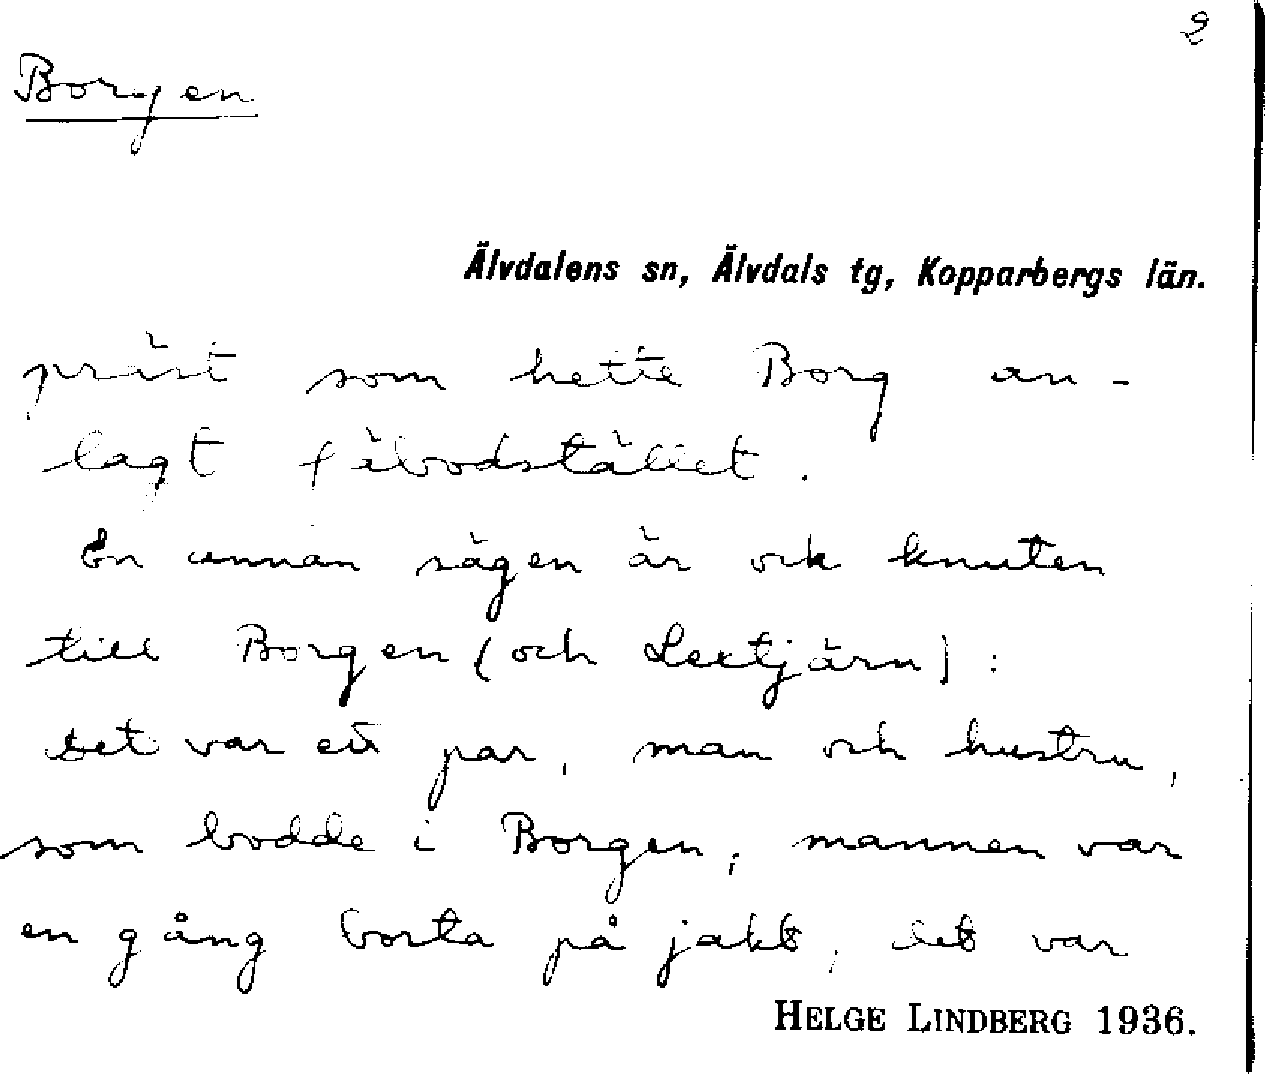 2
Borgen
Älvdalens sn, Älvdals tg, Kopparbergs län.
präst som hette Borg an-
lagt fäbodstället.
En annan sägen är ock knuten
till Borgen (och Lextjärn):
det var ett par, man och hustru,
som bodde i Borgen, mannen var
en gång borta på jakt, det var
HELGE LINDBERG 1936.